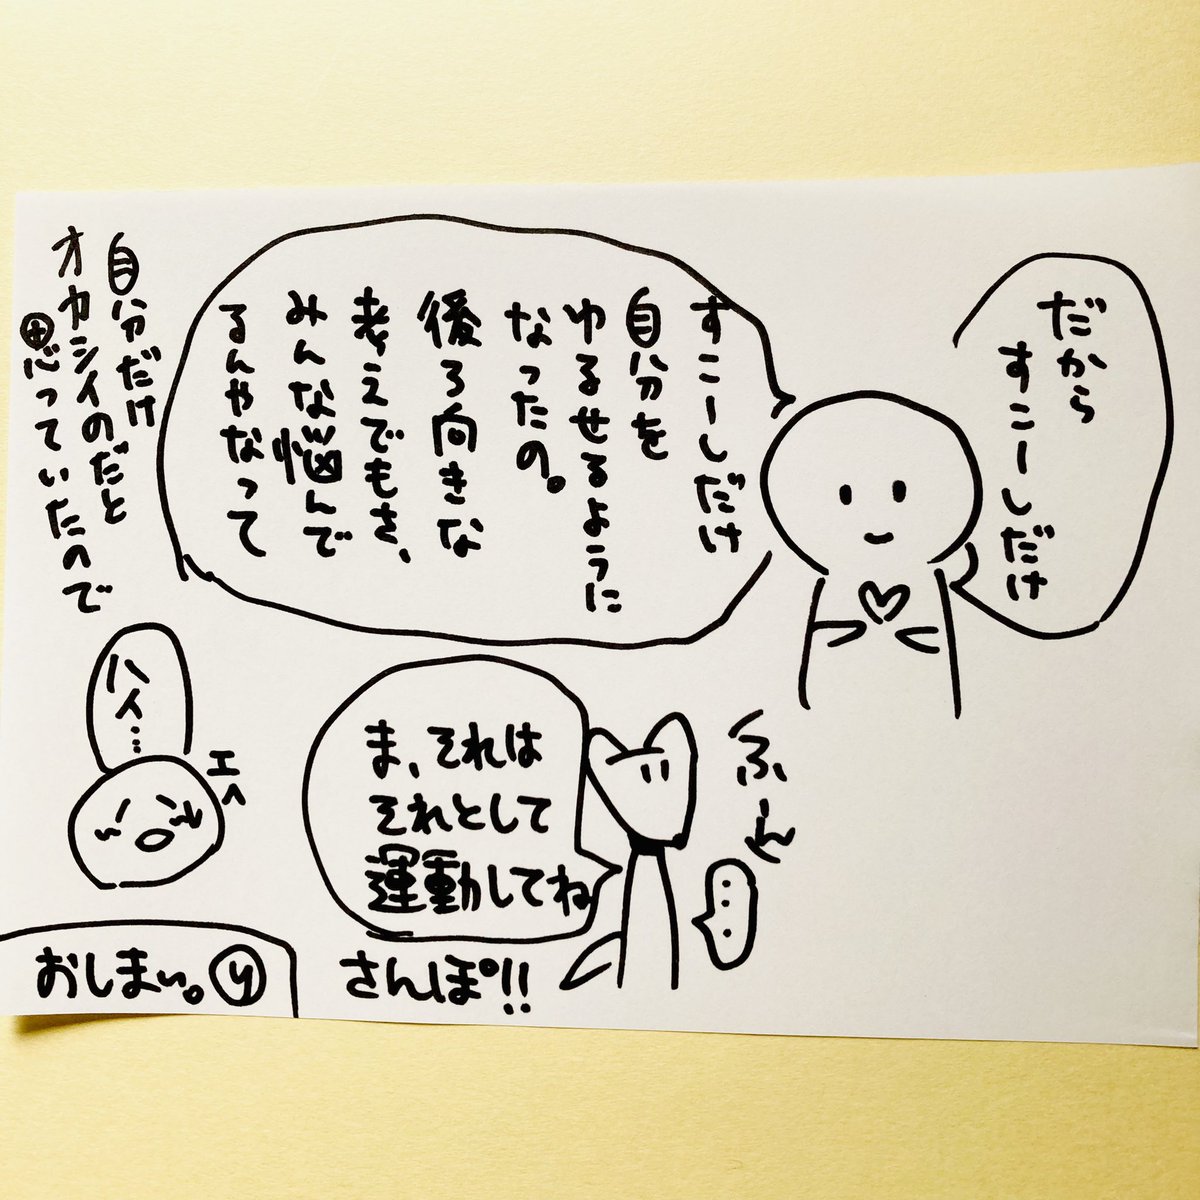 だから
すこーしだけ
すこーしだけ
自分を
ゆるせるように
なったの。
後ろ向きな
考えでもさ、
みんな悩んで
るんやなって
自分だけ
オカシイのだと
思っていたので
ふーん
…
ま、それは
それとして
運動してね
さんぽ!!
ハイ…
エヘ
おしまい。
y